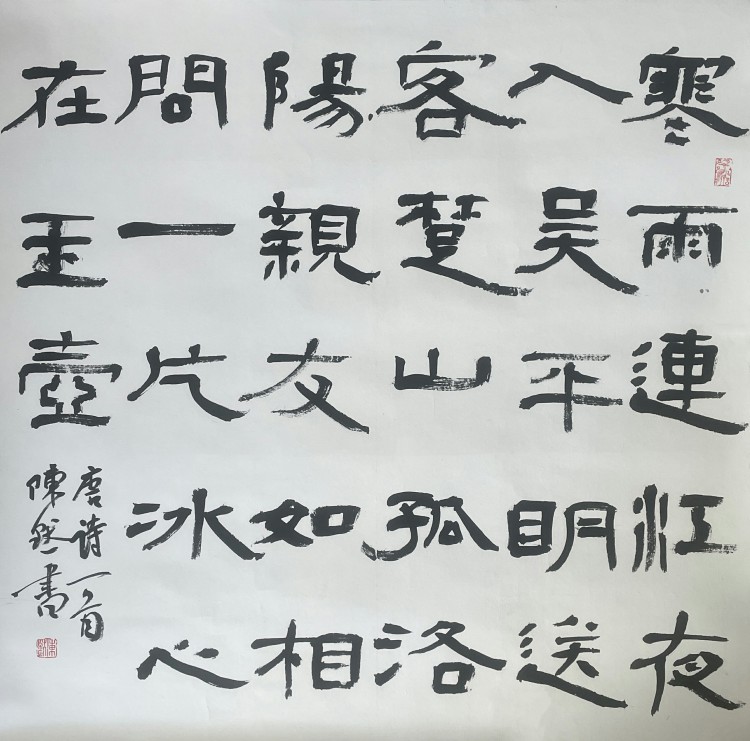 寒雨連江夜
入吳平明送
客楚山孤洛
陽親友如相
問一片冰心
在玉壺
唐诗一首
陳然書